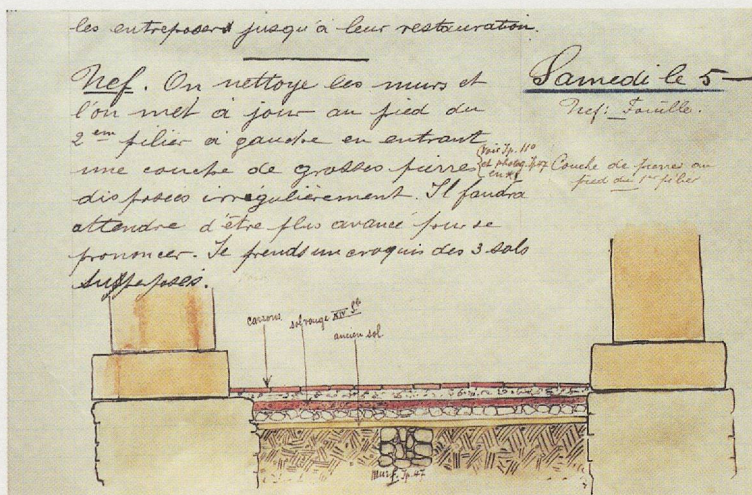 les entreposer jusqu'à leur restauration.
Nef. On nettoye les murs et
l'on met à jour au pied du
2em pilier à gauche en entrant
une couche de grosses pierres
disposées irrégulièrement. Il faudra
attendre d'être plus avancé pour se
prononcer. Je prends un croquis des 3 sols
superposés.
Samedi le 5
Nef: Fouille.
voir Jp. 110
et photog. Jp. 47
Couche de pierres au
pied du 1er pilier
carrons
sol rouge XIV S.
ancien sol
mur Jp. 47